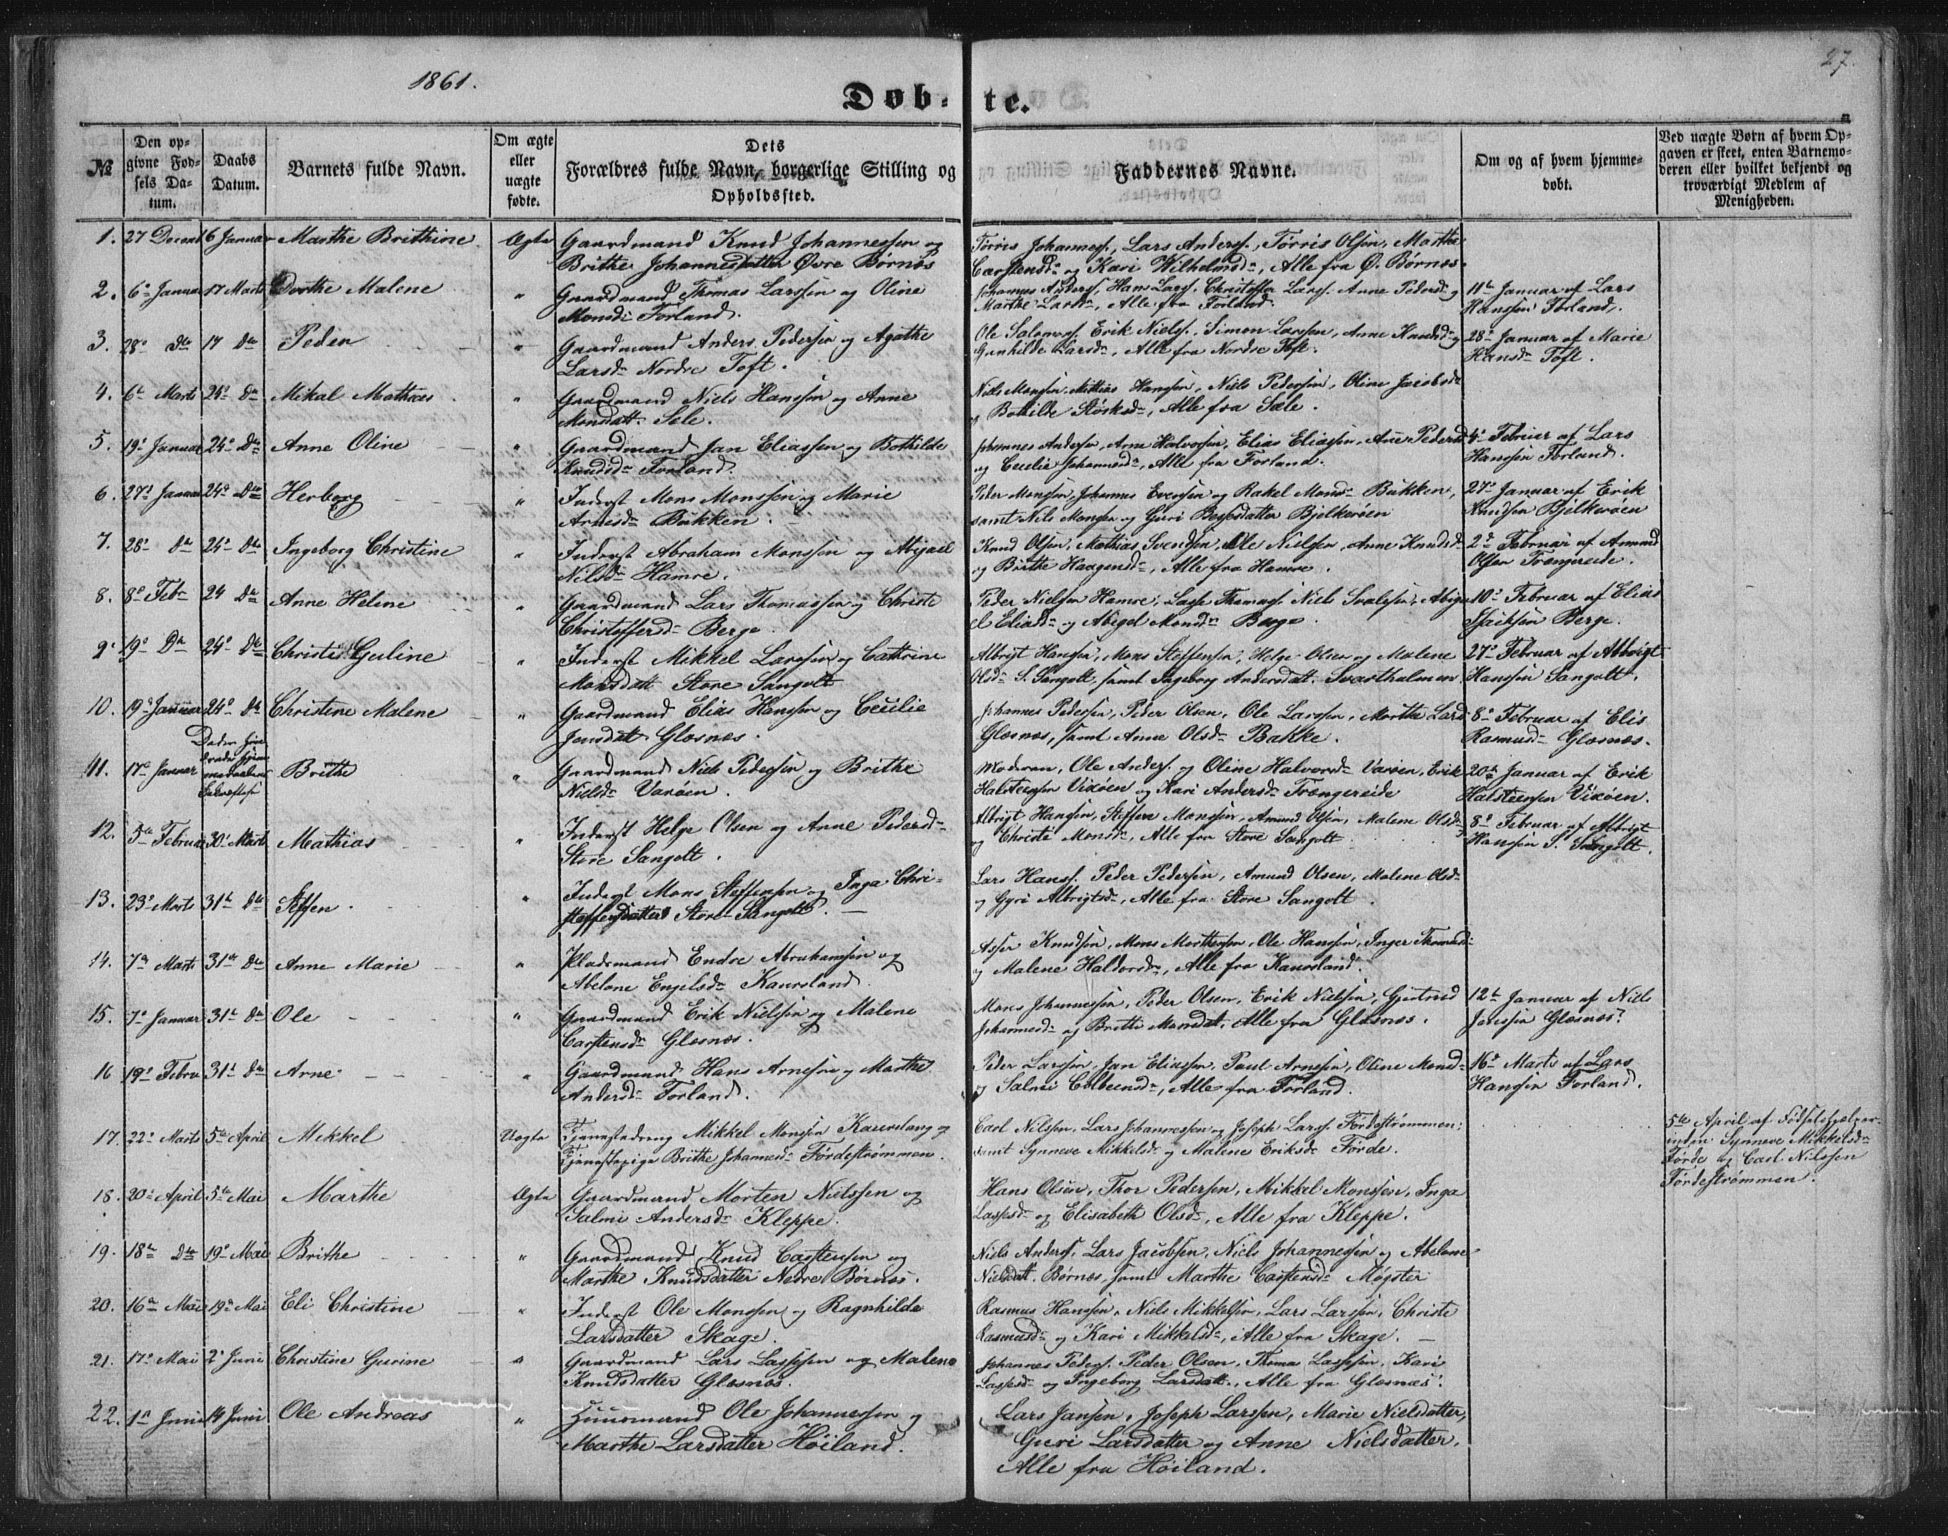 1861.
27.
Døbte.
№
Den opgivne Fødsels Datum.
Daabs Datum.
Barnets fulde Navn.
Om ægte eller uægte fødte.
Dets Forældres fulde Navn, borgerlige Stilling og Opholdssted.
Faddernes Navne.
Om og af hvem hjemmedøbt.
Ved uægte Børn af hvem Opgaven er skeet, enten Barnemoderen eller hvilket bekjendt og troværdigt Medlem af Menigheden.
1. 27 Decemb 6 Januar Marthe Brithine Ægte Gaardmand Knud Johannessen og Brithe Johannesdatter Øvre Børnøs Tørris Johanness. Lars Anderss. Tørris Olsen, Marthe Carstensd. og Kari Wilhelmsd., Alle fra Ø. Børnøs.
2. 6 Januar 17 Marts Dorthe Malene " Gaardmand Thomas Larssen og Oline Monsd. Forland. Johannes Anderss. Hans Larss. Christoffer Larss. Anne Pedersd. og Marthe Larsd., Alle fra Forland. 11te Januar af Lars Hanssen Forland.
3. 28 de 17 de Peder " Gaardmand Anders Pedersen og Agathe Larsd. Nordre Toft. Ole Saloms. Erik Niels. Simon Larssen, Anne Knudsd. og Gunhilde Larsd., Alle fra Nordre Toft. 28 Januar af Marie Hansd. Toft.
4. 6te Marts 24 de Mikal Mathias " Gaardmand Niels Hanssen og Anne Monsdatt. Sele. Niels Monssen, Mathias Hanssen, Niels Pedersen, Oline Jacobsd. og Bothilde, Alle fra Sæle.
5. 19 Januar 24 de Anne Oline " Gaardmand Jan Eliassen og Bothilde Knudsd. Forland. Johannes Andersen, Arne Halvorsen, Elias Eliassen, Anne Pedersd. og Cecilie Johannesd., Alle fra Forland. 4 Februar af Lars Hanssen Forland.
6. 27 Januar 24 de Herborg " Inderst Mons Monssen og Marie Arnesd. Bukken. Peder Monssen, Johannes Evensen og Rakel Monsd. Bukken, samt Nils Monssen og Guri Bessesdatter Bjelkerøen 27 Januar af Erik Knudsen Bjelkerøen
7. 28 de 24 de Ingeborg Christine " Inderst Abraham Monssen og Abigael Nilsd. Hamre. Knud Olsen, Mathias Svendsen, Ole Nielsen, Anne Knudsd. og Brithe Haagensd., Alle fra Hamre. 2 Februar af Amund Olsen Trængereide.
8. 8 Feb 24 de Anne Helene " Gaardmand Lars Thomassen og Christi Christoffersd. Berge. Peder Nielsen Hamre, Lasse Thomass. Niels, Abigael Eliasd. og Abigel Monsd. Berge 10 Februar af Elias Berge.
9. 19 De 24 de Christi Guline " Inderst Mikkel Larssen og Cathrine Monsdatt Store Sangolt Albrigt Hanssen, Mons Steffensen, Helge Olsen og Malene Olsd. S. Sangolt, samt Ingeborg Andersdat. Svartholmen 27 Februar af Albrigt Hanssen Sangolt.
10. 19 Januar 24 de Christine Malene " Gaardmand Elias Hanssen og Cecilie Jensdatt Glæsnæs. Johannes Pederssen, Peder Olsen, Ole Larssen, Marthe Larsd. Glæsnæs, samt Anne Olsd. Bakke. 8 Februar af Elis Rasmusd. Glæsnæs.
11. 17 Januar Brithe " Gaardmand Niels Pederssen og Brithe Nielsd. Varøen. Moderen, Ole Anderss. og Oline Halvorsd. Varøen, Erik Halsteensen Vixøen og Kari Andersd. Trængereide 20 Januar af Erik Halsteensen Vixøen.
12. 5te Februar 30 Marts Mathias " Inderst Helge Olsen og Anne Pedersd. Store Sangolt. Albrigt Hanssen, Steffen Monssen, Amund Olsen, Malene Olsd. og Christi Monsd., Alle fra Store Sangolt 8 Februar af Albrigt Hanssen S. Sangolt.
13. 23 Marts 31te de Steffen " Inderst Mons Steffensen og Inga Christoffersdatter Store Sangolt. Lars Hanss. Peder Pedersen, Amund Olsen, Malene Olsd. og Gyri Albrigtsd., Alle fra Store Sangolt.
14. 7de Marts 31te de Anne Marie " Pladsmand Endre Abrahamsen og Abelone Engelsd. Kaursland. Asser Knudsen, Mons Mortensen, Ole Hanssen, Inger Thomasd. og Malene Haldorsd., Alle fra Kaursland.
15. 7 Januar 31te de Ole " Gaardmand Erik Nielsen og Malene Carstensd. Glæsnæs. Mons Johannessen, Peder Olsen, Erik Nielsen, Gjertrud Johannesd. og Brithe Monsdat, Alle fra Glæsnæs. 12te Januar af Niels Jenssen Glæsnæs.
16 19 Febru 31te de Arne " Gaardmand Hans Arnesen og Marthe Andersd. Forland. Peder Larssen, Jan Eliassen, Paul Arnessen, Oline Monsd. og Salmi Colbensd., Alle fra Forland. 16 Marts af Lars Hanssen Forland.
17. 22 Marts 5te April Mikkel Uegte Tjenestedreng Mikkel Monssen Kaursland og Tjenestepige Brithe Johannesd. Førdestrømmen. Carl Nilssen, Lars Johannessen og Joseph Larss. Førdestrømmen, samt Synneve Mikkelsd. og Malene Eriksd. Førde. 5te April af Fødselshjelperinden Synneve Mikkelsd. Førde og Carl Nilssen Førdestrømmen.
18. 20 April 5te Mai Marthe Ægte Gaardmand Morten Nielssen og Salmi Andersd. Kleppe. Hans Olsen, Thor Pedersen, Mikkel Monssen, Inga Lassesd. og Elisabeth Olsd., Alle fra Kleppe.
19. 18de de 19 Mai Brithe " Gaardmand Knud Castensen og Marthe Knudsdatter Nedre Børnøs. Niels Anderss, Lars Jacobsen, Niels Johannessen og Abelone Nielsdatt. Børnøs, samt Marthe Carstensd. Møgster
20. 16de Mai 19de Mai Eli Christine " Inderst Ole Monssen og Ragnhilde Larsdatter Skage. Rasmus Hanssen, Niels Mikkelsen, Lars Larssen, Christi Rasmusd. og Kari Mikkelsd., Alle fra Skage.
21. 17 Mai 2 Juni Christine Gurine " Gaardmand Lars Lassesen og Malene Knudsdatter Glæsnæs. Johannes Pederss. Peder Olsen, Thomas Lassesen, Kari Lassesd. og Ingeborg Larsdatt., Alle fra Glæsnæs.
22. 1 Juni 14 Juni Ole Andreas " Huusmand Ole Johannessen og Marthe Larsdatter Høiland. Lars Jansen, Joseph Larssen, Marie Nielsdatter, Guri Larsdatter og Anne Nielsdatter, Alle fra Høiland.